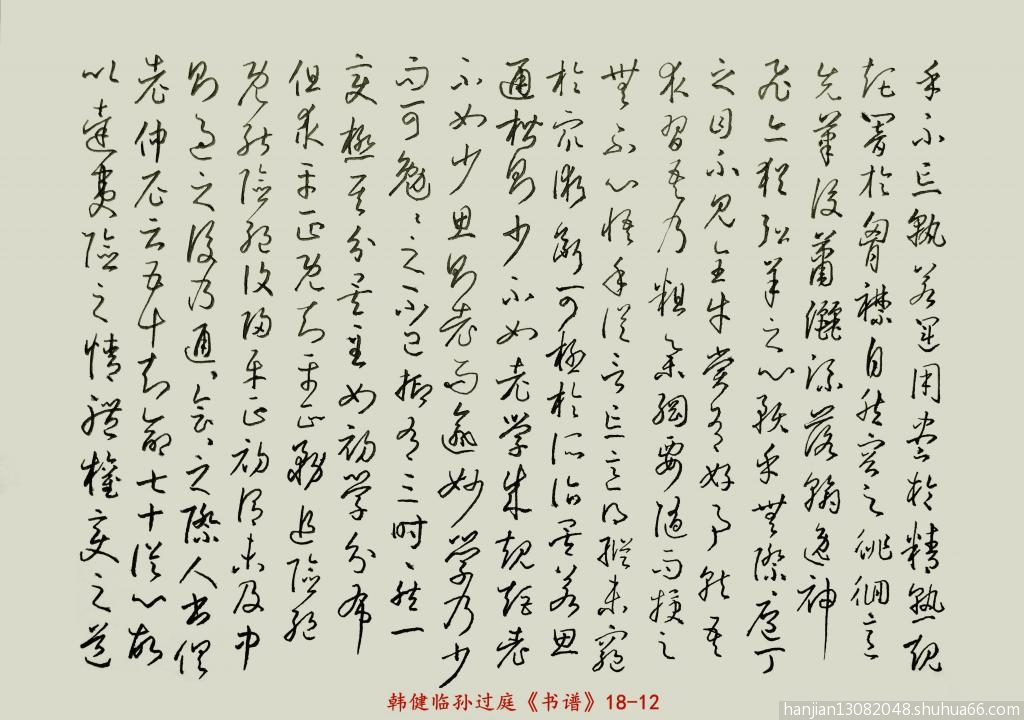 手不忘孰若運用盡於精熟規
矩闇於胷襟自然容与徘徊意
先筆後蕭灑流落翰逸神
飛亦猶弘羊之心預乎無際庖丁
之目不見全牛嘗有好事就吾
求習吾乃粗舉綱要隨而授之
無不心悟手從言忘意得縱未窮
於眾術斷可極於所詣矣若思
通楷則少不如老學成規矩老
不如少思則老而逾妙學乃少
而可勉〻之不已抑有三時〻然一
變極其分矣至如初學分布
但求平正既知平正務追險絕
既能險絕復歸平正初謂未及中
則過之後乃通〻會〻之際人書俱
老仲尼云五十知命七十從心故
以達夷險之情體權變之道
韩健临孙过庭《书谱》18-12
hanjian13082048.shuhua66.com